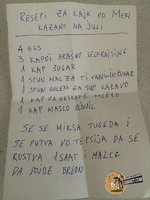 RESEPI ZA KAJK OD MEN
KAZANO NA JULI
4 EGS
3 KAPOI BRAŠNO SELFRAISING
1 KAP ŠUGAR
1 SPUN MAL ZA TI VANILIN ŠUGAR
1 SPUN GOLEM ZA SUP KAKAVO
1 KAP ZA NESKAFE MLEKO
1 KAP MASLO
SE SE MIKSA TUGEDA I
SE PUTVA VO TEPSIJA DA SE
ROSTVA 1 SAAT I MALCE
DA DOJDE BREON